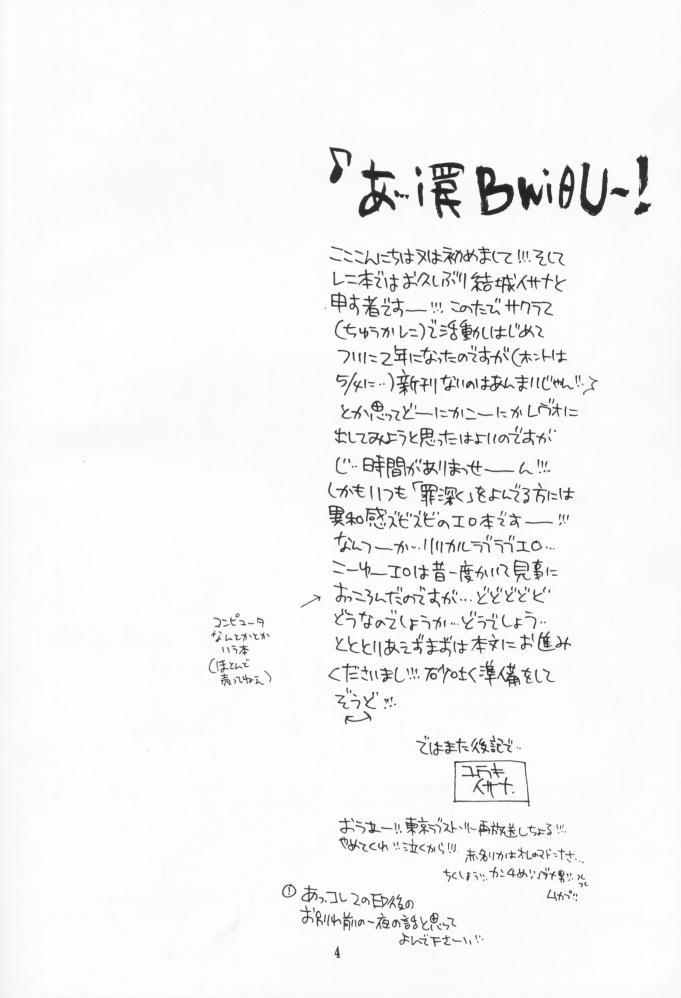 こここんにちは又は初めまして!!!そして
レニ本ではお久しぶり結城イサナと
申す者ですー!!!このたびサクラて
(ちゅうかレニ)で活動しはじめて
ついに2年になったのですが(ホントは
5/4に‥)新刊ないのはあんまいじゃん!!
とか思ってどーにかこーにかレヴォに
出してみようと思ったはよいのですが
じ‥時間がありまっせーーん!!!
しかもいつも「罪深く」をよんでる方には
異和感ズビズビのエロ本ですー!!!
なんつーか‥リリカルラブラブエロ…
こーゆーエロは昔一度かいて見事に
おっころんだのですが…どどどどど
どうなのでしょうか…どうでしょう‥
とととりあえずまずは本文にお進み
くださいまし!!!砂吐く準備をして
ぞうど!!!
コンピュータ
なんとかとか
いう本
(ほとんど
売ってねえ)
ではまた後記で‥
ユウキ
イサナ
おうわー!!東京ラブストーリー再放送しちょる!!!
やめてくれ!!泣くから!!!
赤名リカはオレのマドンナさ…
ちくしょう!!カンチめ!ダメ男!!
ムカプ!!
! あっコレ2の印後の
お別れ前の一夜の話と思って
よんで下さーい!!
4